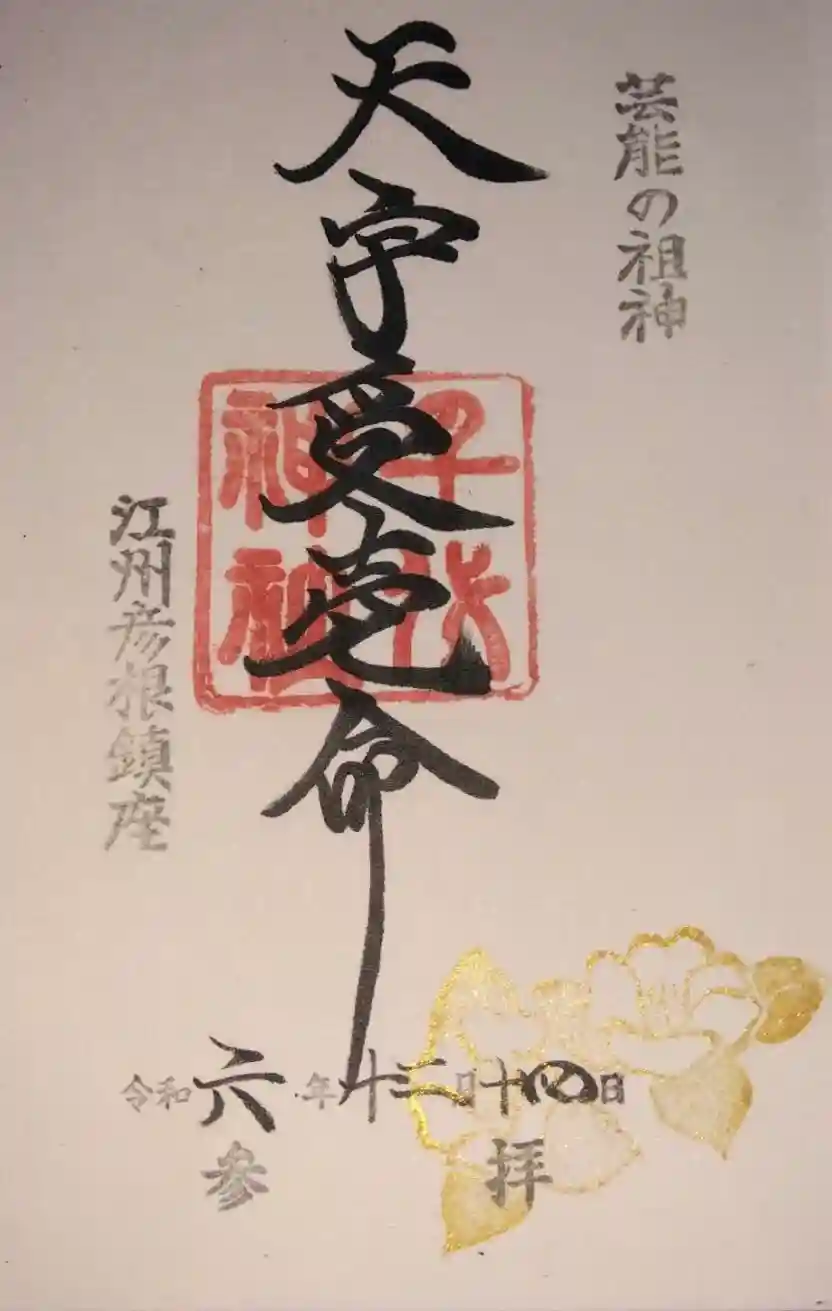 芸能の祖神
天宇受売命
千代
神社
江州彦根鎮座
令和六年十二月十四日
参拝